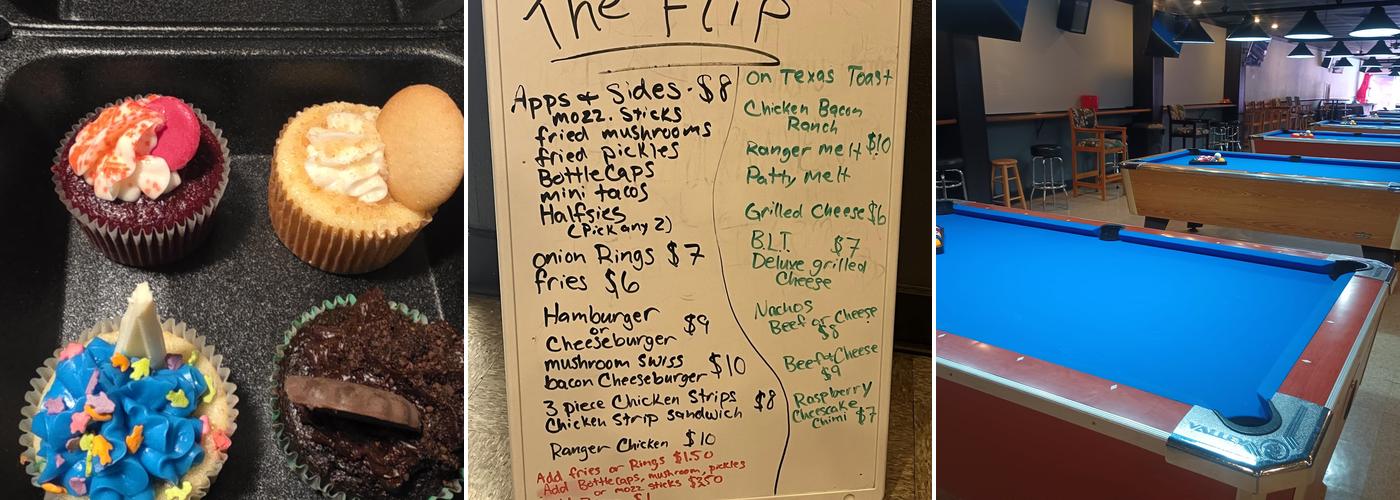 The Flip
Apps & Sides - $8
mozz. sticks
fried mushrooms
fried pickles
BottleCaps
mini tacos
Halfsies
(Pick any 2)
onion Rings $7
fries $6
Hamburger
or
Cheeseburger
$9
mushroom Swiss
bacon Cheeseburger
$10
3 piece Chicken Strips
Chicken Strip Sandwich
$8
Ranger Chicken $10
Add fries or Rings $1.50
Add BottleCaps, mushroom, pickles
or mozz sticks $3.50
on Texas Toast
Chicken Bacon
Ranch
Ranger melt $10
Patty Melt
Grilled Cheese $6
BLT $7
Deluxe grilled
Cheese
Nachos
Beef or Cheese
$8
Beef & Cheese
$9
Raspberry
Cheesecake
Chimi $7
VALLEY